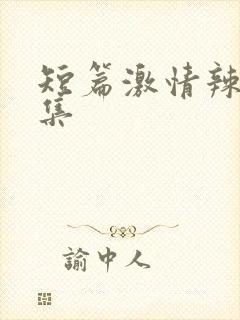 短篇激情辣
集
諭中人